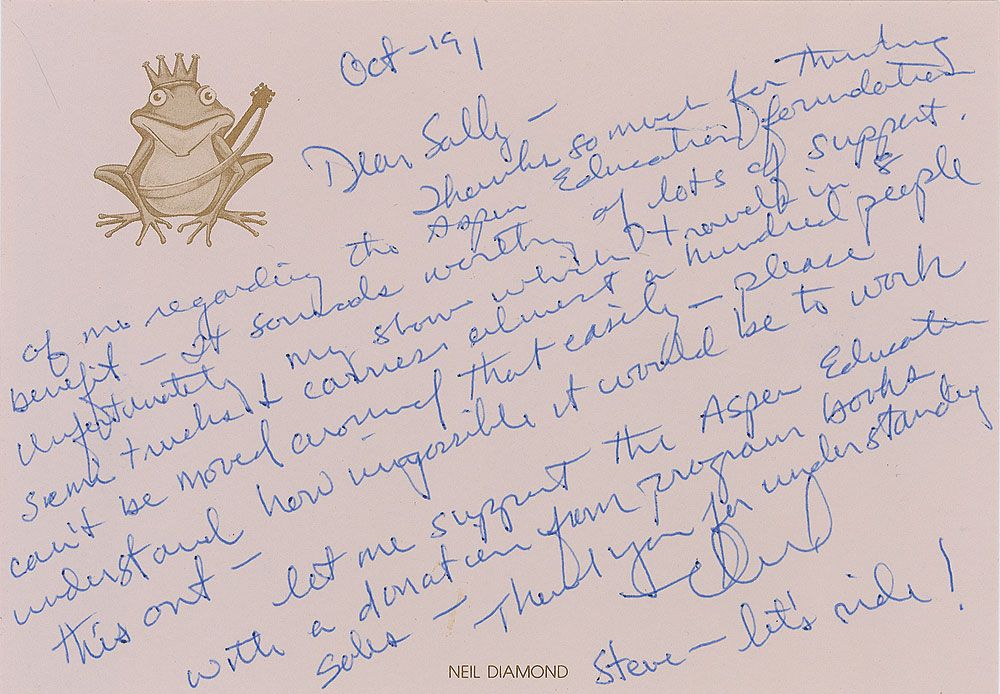 Oct - 191
Dear Sally -
Thanks so much for thinking
of me regarding the Aspen Education foundation
benefit - It sounds worthy of lots of support.
Unfortunately my show which travels in 8
semi trucks & carries almost a hundred people
can't be moved around that easily - please
understand how impossible it would be to work
this out - let me support the Aspen Education
with a donation from program books
sales - Thank you for understanding
Steve - let's ride!
NEIL DIAMOND